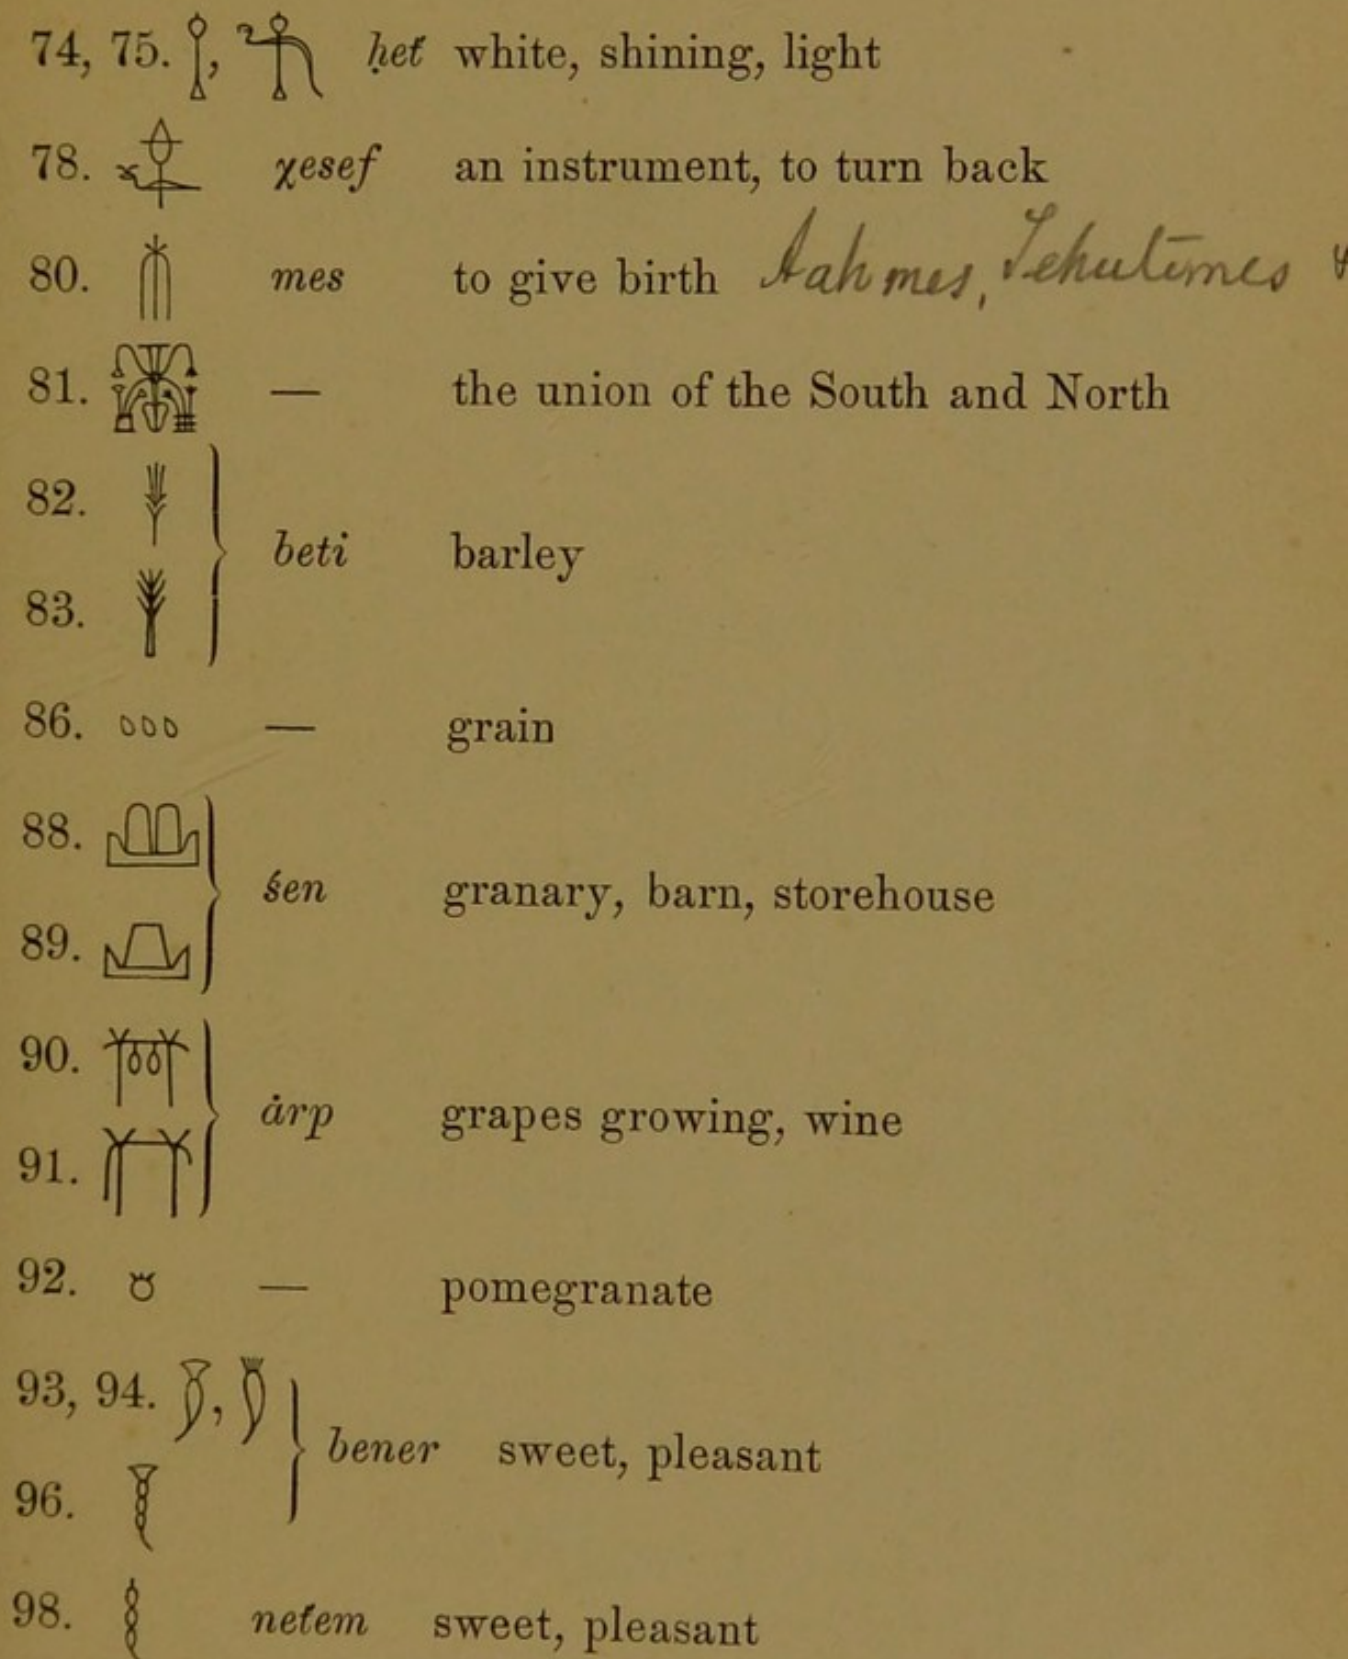 74, 75. 𓌉, 𓌊 ḥet́ white, shining, light
78. 𓐠 χesef an instrument, to turn back
80. 𓄟 mes to give birth Aahmes, Tehutimes
81. — the union of the South and North
82.
beti barley
83.
86. — grain
88.
śen granary, barn, storehouse
89.
90.
ȧrp grapes growing, wine
91.
92. — pomegranate
93, 94.
bener sweet, pleasant
96.
98. net́em sweet, pleasant